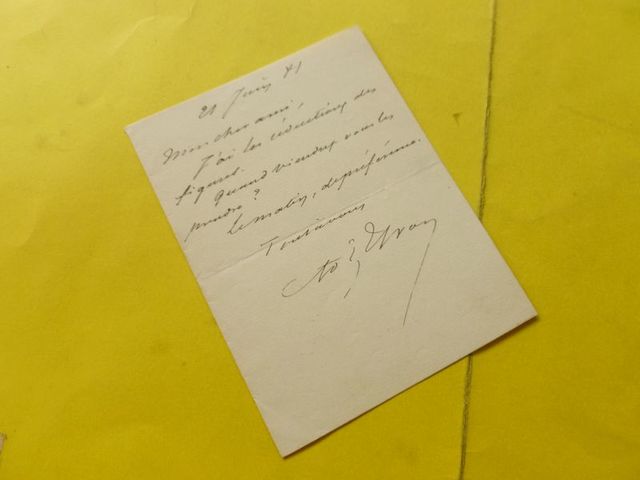 21 Juin 81
Mon cher ami,
J'ai les réductions des
figures.
Quand viendrez vous les
prendre?
le matin, de préférence.
Tout à vous
Ad Yvon